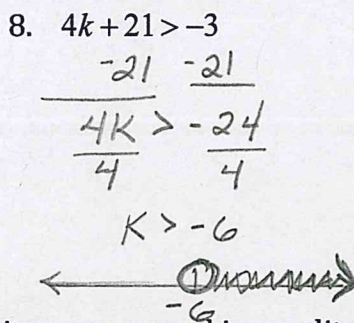 8. 4k+21>-3
-21 -21
4K > -24
4 4
K > -6
-6